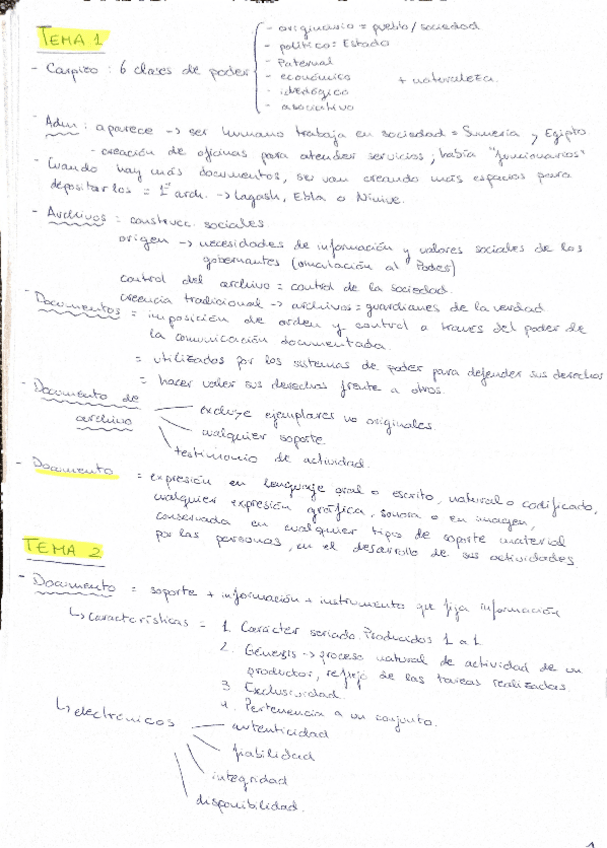 TEMA 1
- Carpizo: 6 clases de poder
- originario = pueblo / sociedad
- político = Estado
- Paternal
- económico + naturaleza.
- ideológico
- asociativo
- Adm: aparece → ser humano trabaja en sociedad = Sumeria y Egipto
- creación de oficinas para atender servicios, había "funcionarios"
- Cuando hay más documentos, se van creando más espacios para
depositarlos = 1º arch. → Lagash, Ebla o Nínive.
- Archivos = construcc. sociales
origen → necesidades de información y valores sociales de los
gobernantes (vinculación al Poder)
control del archivo = control de la sociedad.
creencia tradicional → archivos = guardianes de la verdad
- Documentos = imposición de orden y control a través del poder de
la comunicación documentada.
= utilizados por los sistemas de poder para defender sus derechos
= hacer valer sus derechos frente a otros.
- Documento de archivo
excluye ejemplares no originales.
cualquier soporte.
testimonio de actividad.
- Documento = expresión en lenguaje oral o escrito, natural o codificado,
cualquier expresión gráfica, sonora o en imagen,
conservada en cualquier tipo de soporte material
por las personas, en el desarrollo de sus actividades.
TEMA 2
- Documento = soporte + información + instrumento que fija información
↳ características = 1. Carácter seriado. Producidos 1 a 1
2. Génesis → proceso natural de actividad de un
productor, reflejo de las tareas realizadas.
3. Exclusividad.
4. Pertenencia a un conjunto.
↳ electrónicos
autenticidad
fiabilidad
integridad
disponibilidad.
1